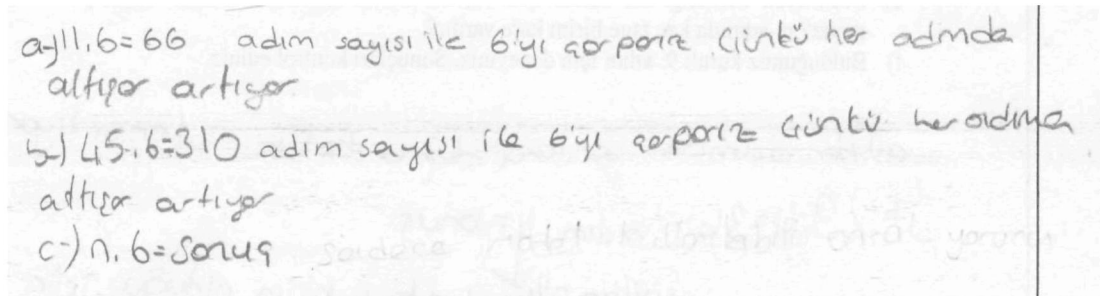 a-) 11.6=66 adım sayısı ile 6'yı çarparız Çünkü her adımda
altışar artıyor
b-) 45.6=310 adım sayısı ile 6'yı çarparız Çünkü her adımda
altışar artıyor
c-) n.6=Sonuç